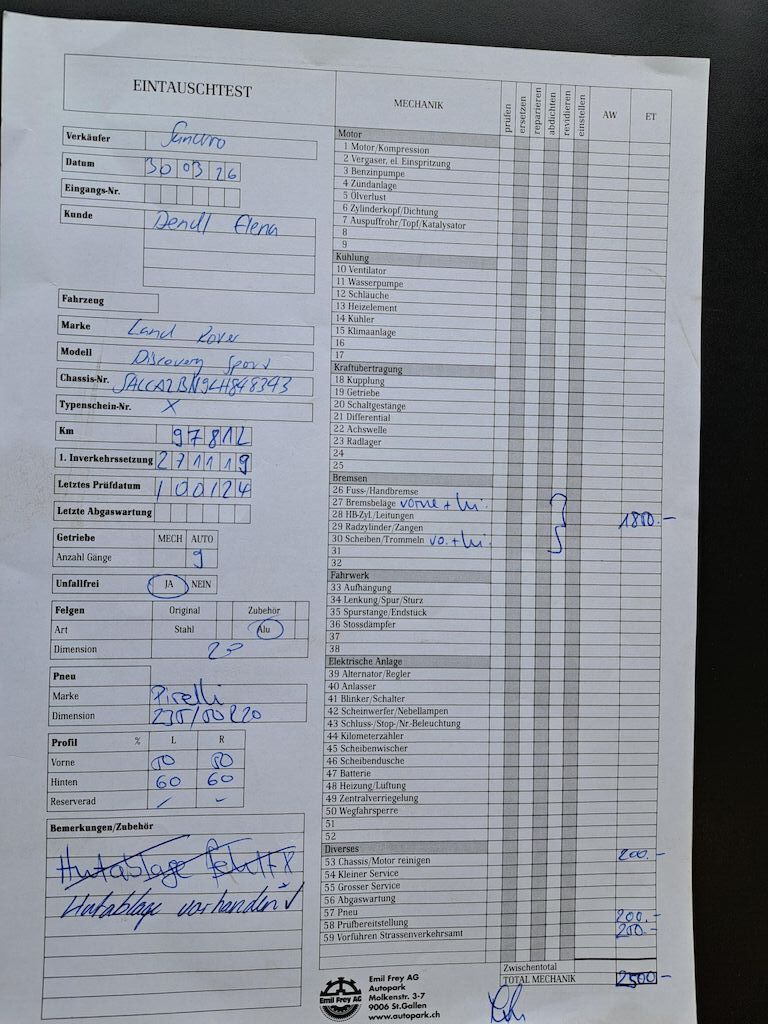 EINTAUSCHTEST
Verkäufer
Datum 30 03 26
Eingangs-Nr.
Kunde Dendl Elena
Fahrzeug
Marke Land Rover
Modell Discovery Sport
Chassis-Nr. SALCA2BN9LH848343
Typenschein-Nr. X
Km 97812
1. Inverkehrssetzung 271119
Letztes Prüfdatum 100124
Letzte Abgaswartung
Getriebe MECH AUTO
Anzahl Gänge 9
Unfallfrei JA NEIN
Felgen Original Zubehör
Art Stahl Alu
Dimension 20
Pneu
Marke Pirelli
Dimension 235/50 R20
Profil % L R
Vorne 50 50
Hinten 60 60
Reserverad - -
Bemerkungen/Zubehör
Hutablage fehlt X
Hutablage vorhanden ✓
MECHANIK prüfen ersetzen reparieren abdichten revidieren einstellen AW ET
Motor
1 Motor/Kompression
2 Vergaser, el. Einspritzung
3 Benzinpumpe
4 Zündanlage
5 Ölverlust
6 Zylinderkopf/Dichtung
7 Auspuffrohr/Topf/Katalysator
8
9
Kühlung
10 Ventilator
11 Wasserpumpe
12 Schläuche
13 Heizelement
14 Kühler
15 Klimaanlage
16
17
Kraftübertragung
18 Kupplung
19 Getriebe
20 Schaltgestänge
21 Differential
22 Achswelle
23 Radlager
24
25
Bremsen
26 Fuss-/Handbremse
27 Bremsbeläge vorne + hi.
28 HB-Zyl./Leitungen 1800.-
29 Radzylinder/Zangen
30 Scheiben/Trommeln vo. + hi.
31
32
Fahrwerk
33 Aufhängung
34 Lenkung/Spur/Sturz
35 Spurstange/Endstück
36 Stossdämpfer
37
38
Elektrische Anlage
39 Alternator/Regler
40 Anlasser
41 Blinker/Schalter
42 Scheinwerfer/Nebellampen
43 Schluss-/Stop-/Nr.-Beleuchtung
44 Kilometerzähler
45 Scheibenwischer
46 Scheibendusche
47 Batterie
48 Heizung/Lüftung
49 Zentralverriegelung
50 Wegfahrsperre
51
52
Diverses
53 Chassis/Motor reinigen 200.-
54 Kleiner Service
55 Grosser Service
56 Abgaswartung
57 Pneu
58 Prüfbereitstellung 200.-
59 Vorführen Strassenverkehrsamt 200.-
Zwischentotal
TOTAL MECHANIK 2500.-
Emil Frey AG
Emil Frey AG
Autopark
Molkenstr. 3-7
9006 St.Gallen
www.autopark.ch